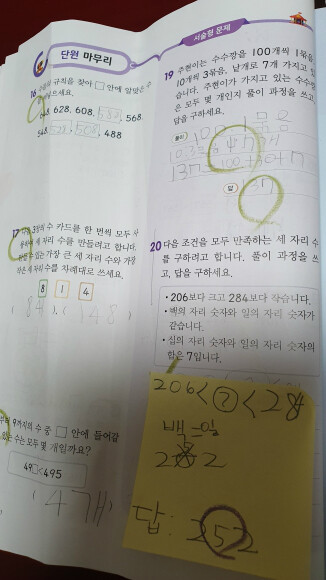 단원 마무리
16
규칙을 찾아 □ 안에 알맞은 수
648, 628, 608, 588, 568,
548, 528, 508, 488
17
수 카드를 한 번씩 모두 사
세 자리 수를 만들려고 합니다.
만들 수 있는 가장 큰 세 자리 수와 가장
작은 세 자리 수를 차례대로 쓰세요.
8 1 4
(84 ), ( 148 )
9까지의 수 중 □ 안에 들어갈
있는 수는 모두 몇 개입니까?
49□<495
( 4개 )
서술형 문제
19 주현이는 수수깡을 100개씩 1묶음,
10개씩 3묶음, 낱개로 7개 가지고 있
습니다. 주현이가 가지고 있는 수수깡
은 모두 몇 개인지 풀이 과정을 쓰고,
답을 구하세요.
풀이
답
20 다음 조건을 모두 만족하는 세 자리 수
를 구하려고 합니다. 풀이 과정을 쓰
고, 답을 구하세요.
• 206보다 크고 284보다 작습니다.
• 백의 자리 숫자와 일의 자리 숫자가
같습니다.
• 십의 자리 숫자와 일의 자리 숫자의
합은 7입니다.
206<?<284
백=일
2 2
답: 252